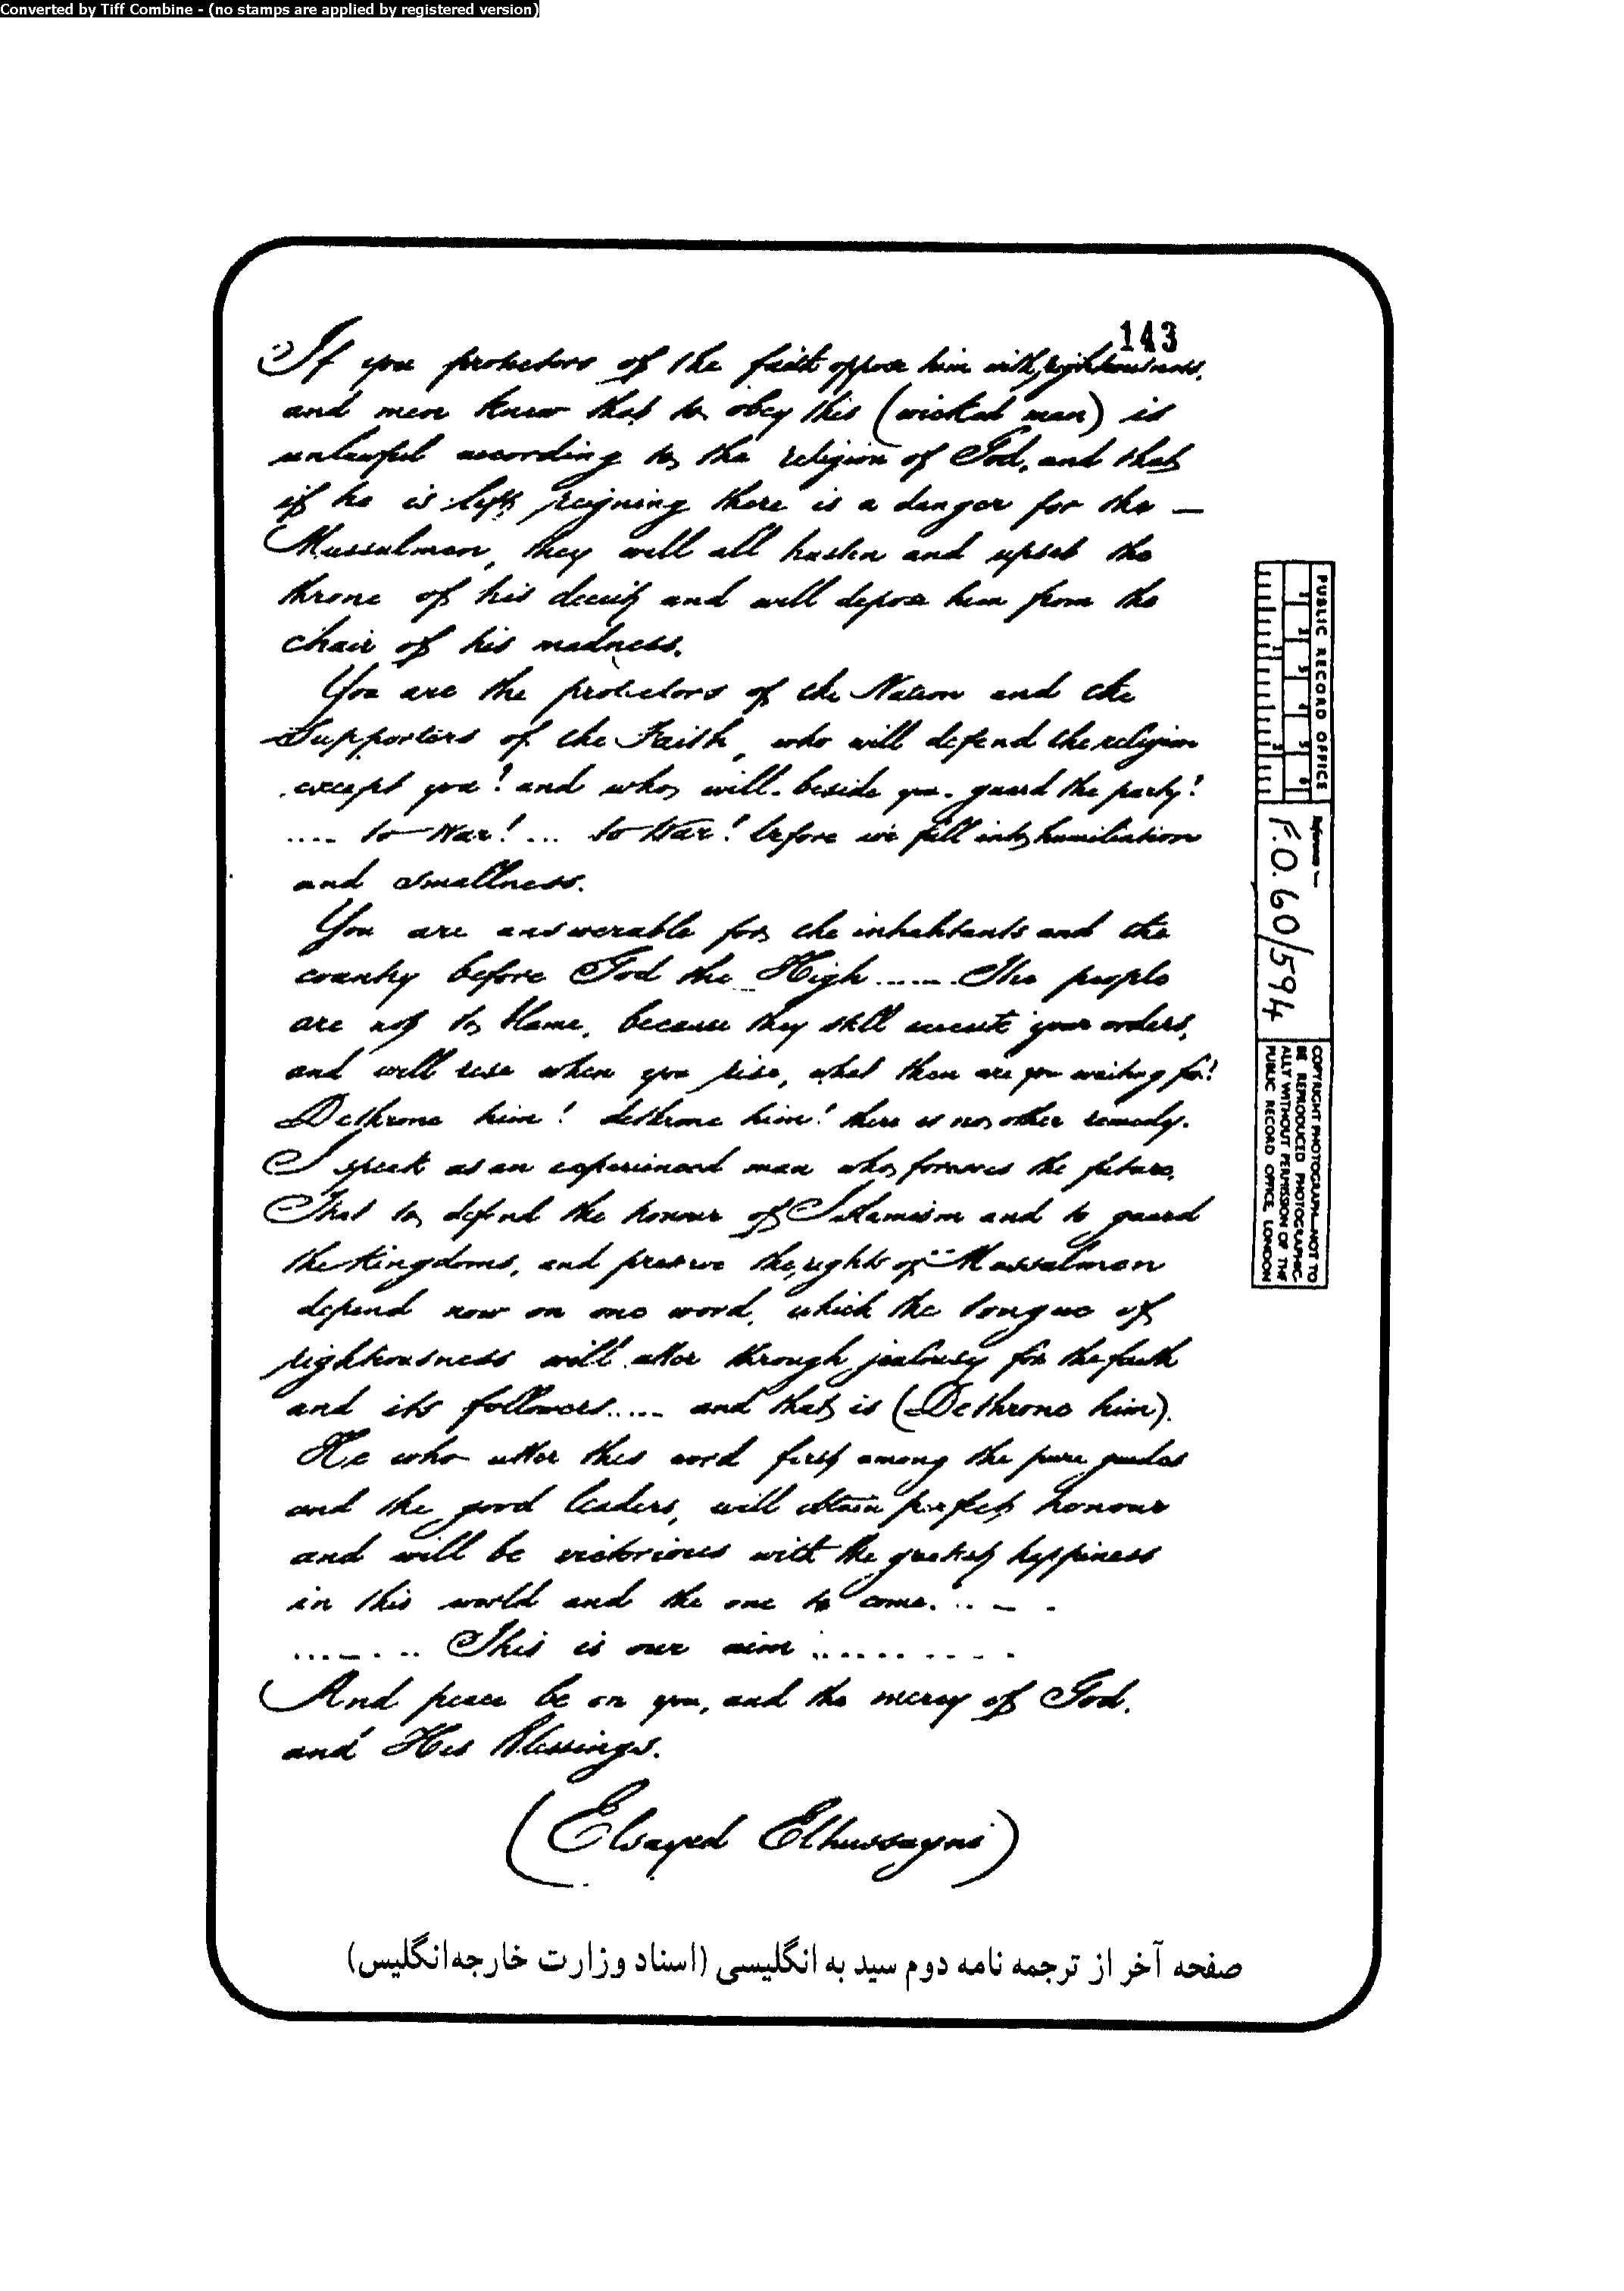 Converted by Tiff Combine - (no stamps are applied by registered version)
143
If you protectors of the faith oppose him with righteousness,
and men knew that to obey this (wicked man) is
unlawful according to the religion of God, and that
if he is left reigning there is a danger for the —
Mussulman, they will all hasten and upset the
throne of his deceit and will depose him from the
chair of his madness.
You are the protectors of the Nation and the
Supporters of the Faith, who will defend the religion
except you! and who will beside you guard the party!
.... to War! ... to War! before we fall into humiliation
and smallness.
You are answerable for the inhabitants and the
country before God the High ...... The people
are not to blame, because they still execute your orders,
and will rise when you rise, what then are you waiting for!
Dethrone him! dethrone him! there is no other remedy.
I speak as an experienced man who foresees the future,
That to defend the honour of Islamism and to guard
the Kingdoms, and preserve the rights of Mussulman
depend now on one word, which the tongue of
righteousness will utter through jealousy for the faith
and its followers..... and that is (Dethrone him).
He who utter this word first among the pure guides
and the good leaders, will obtain perfect honour
and will be victorious with the greatest happiness
in this world and the one to come. .. – .
........ This is our aim ..........
And peace be on you, and the mercy of God.
and His Blessings.
(Elsayed Elhussayni)
صفحه آخر از ترجمه نامه دوم سید به انگلیسی (اسناد وزارت خارجه انگلیس)
PUBLIC RECORD OFFICE
1 2 3 4 5 6
1 2
Reference :—
F.O. 60/594
COPYRIGHT PHOTOGRAPH—NOT TO
BE REPRODUCED PHOTOGRAPHIC-
ALLY WITHOUT PERMISSION OF THE
PUBLIC RECORD OFFICE, LONDON